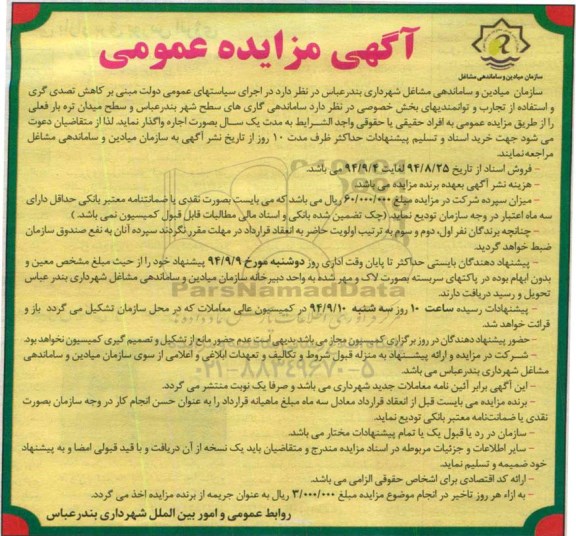 آگهی مزایده عمومی
سازمان میادین و ساماندهی مشاغل
سازمان میادین و ساماندهی مشاغل شهرداری بندرعباس در نظر دارد در اجرای سیاستهای عمومی دولت مبنی بر کاهش تصدی گری
و استفاده از تجارب و توانمندیهای بخش خصوصی در نظر دارد ساماندهی گاری های سطح شهر بندرعباس و سطح میدان تره بار فعلی
را از طریق مزایده عمومی به افراد حقیقی یا حقوقی واجد الشرایط به مدت یک سال بصورت اجاره واگذار نماید. لذا از متقاضیان دعوت
می شود جهت خرید اسناد و تسلیم پیشنهادات حداکثر ظرف مدت ۱۰ روز از تاریخ نشر آگهی به سازمان میادین و ساماندهی مشاغل
مراجعه نمایند.
- فروش اسناد از تاریخ ۹۴/۸/۲۵ لغایت ۹۴/۹/۴ می باشد.
- هزینه نشر آگهی بعهده برنده مزایده می باشد.
- میزان سپرده شرکت در مزایده مبلغ ۶۰/۰۰۰/۰۰۰ ریال می باشد که می بایست بصورت نقدی یا ضمانتنامه معتبر بانکی حداقل دارای
سه ماه اعتبار در وجه سازمان تودیع نماید. (چک تضمین شده بانکی و اسناد مالی مطالبات قابل قبول کمیسیون نمی باشد.)
- چنانچه برندگان نفر اول، دوم و سوم به ترتیب اولویت حاضر به انعقاد قرارداد در مهلت مقرر نگردند سپرده آنان به نفع صندوق سازمان
ضبط خواهد گردید.
- پیشنهاد دهندگان بایستی حداکثر تا پایان وقت اداری روز دوشنبه مورخ ۹۴/۹/۹ پیشنهاد خود را از حیث مبلغ مشخص معین و
بدون ابهام بوده در پاکتهای سربسته بصورت لاک و مهر شده به واحد دبیرخانه سازمان میادین و ساماندهی مشاغل شهرداری بندر عباس
تحویل و رسید دریافت دارند.
- پیشنهادات رسیده ساعت ۱۰ روز سه شنبه ۹۴/۹/۱۰ در کمیسیون عالی معاملات که در محل سازمان تشکیل می گردد باز و
قرائت خواهد شد.
حضور پیشنهاد دهندگان در روز برگزاری کمیسیون مجاز می باشد بدیهی است عدم حضور مانع از تشکیل و تصمیم گیری کمیسیون نخواهد بود.
- شرکت در مزایده و ارائه پیشنهاد به منزله قبول شروط و تکالیف و تعهدات ابلاغی و اعلامی از سوی سازمان میادین و ساماندهی
مشاغل شهرداری بندرعباس می باشد.
- این آگهی برابر آئین نامه معاملات جدید شهرداری می باشد و صرفا یک نوبت منتشر می گردد.
- برنده مزایده می بایست قبل از انعقاد قرارداد معادل سه ماه مبلغ ماهیانه قرارداد را به عنوان حسن انجام کار در وجه سازمان بصورت
نقدی یا ضمانتنامه معتبر بانکی تودیع نماید.
- سازمان در رد یا قبول یک یا تمام پیشنهادات مختار می باشد.
- سایر اطلاعات و جزئیات مربوطه در اسناد مزایده مندرج و متقاضیان باید یک نسخه از آن دریافت و با قید قبولی امضا و به پیشنهاد
خود ضمیمه و تسلیم نماید.
- ارائه کد اقتصادی برای اشخاص حقوقی الزامی می باشد.
- به ازاء هر روز تاخیر در انجام موضوع مزایده مبلغ ۳/۰۰۰/۰۰۰ ریال به عنوان جریمه از برنده مزایده اخذ می گردد.
روابط عمومی و امور بین الملل شهرداری بندرعباس
ParsNamadData
۰۲۱-۸۸۳۴۹۶۷۰-۵